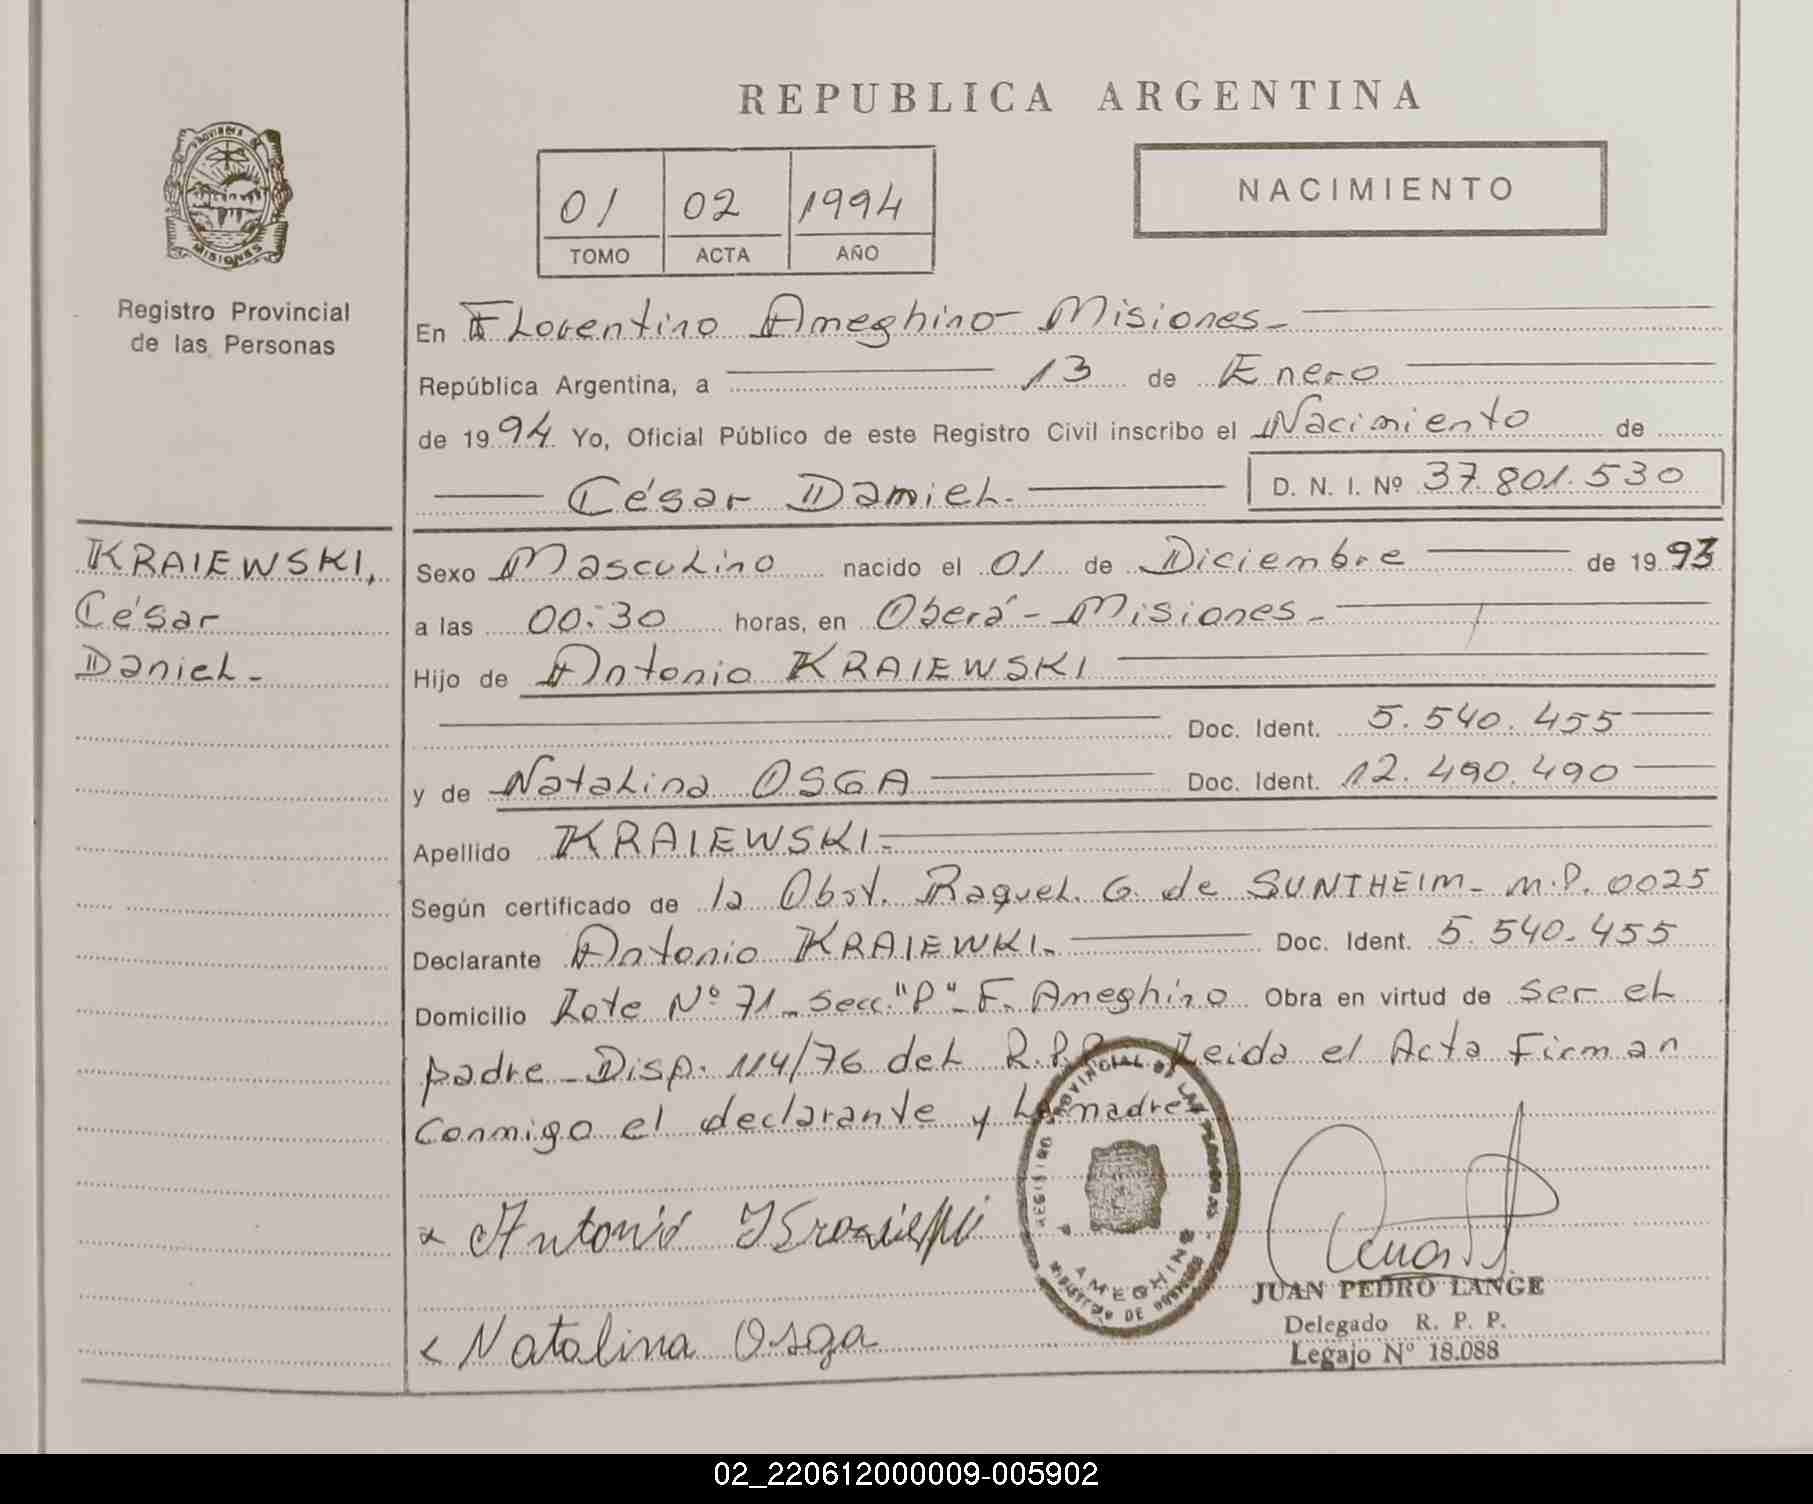 REPUBLICA ARGENTINA
PROVINCIA DE
MISIONES
Registro Provincial
de las Personas
01 02 1994
TOMO ACTA AÑO
NACIMIENTO
En Florentino Ameghino - Misiones -
República Argentina, a 13 de Enero
de 1994 Yo, Oficial Público de este Registro Civil inscribo el Nacimiento de
César Daniel. D. N. I. Nº 37.801.530
KRAIEWSKI,
César
Daniel -
Sexo Masculino nacido el 01 de Diciembre de 1993
a las 00:30 horas, en Oberá - Misiones -
Hijo de Antonio KRAIEWSKI
Doc. Ident. 5.540.455
y de Natalina OSGA Doc. Ident. 12.490.490
Apellido KRAIEWSKI -
Según certificado de la Obst. Raquel. G. de SUNTHEIM - M.P. 0025
Declarante Antonio KRAIEWKI - Doc. Ident. 5.540.455
Domicilio Lote Nº 71 - Secc. "P" - F. Ameghino Obra en virtud de ser el
padre - Disp. 114/76 del R.P.P. Leida el Acta Firman
Conmigo el declarante y la madre
REGISTRO PROVINCIAL DE LAS PERSONAS
AMEGHINO
MINISTERIO DE GOBIERNO
x Antonio
x Natalina Osga
JUAN PEDRO LANGE
Delegado R. P. P.
Legajo Nº 18.088
02_220612000009-005902